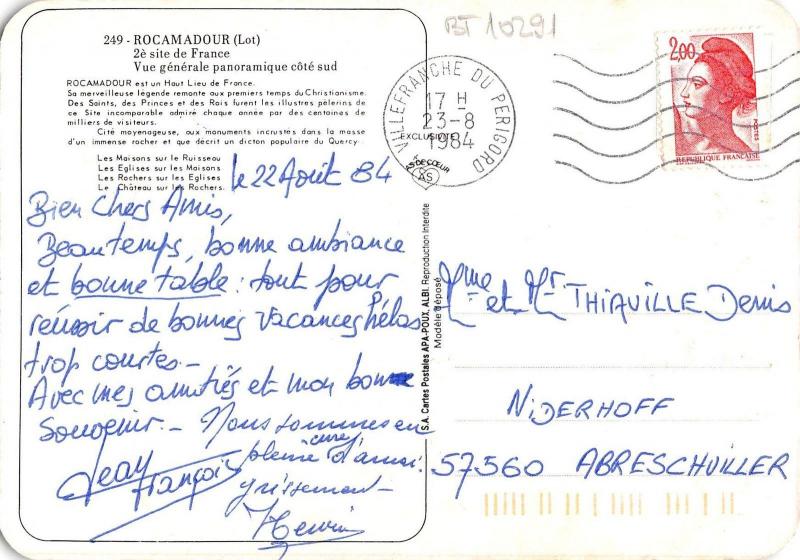 BT 10291
249 - ROCAMADOUR (Lot)
2è site de France
Vue générale panoramique côté sud
ROCAMADOUR est un Haut Lieu de France.
Sa merveilleuse légende remonte aux premiers temps du Christianisme.
Des Saints, des Princes et des Rois furent les illustres pèlerins de
ce Site incomparable admiré chaque année par des centaines de
milliers de visiteurs.
Cité moyenageuse, aux monuments incrustés dans la masse
d'un immense rocher et que décrit un dicton populaire du Quercy
Les Maisons sur le Ruisseau
Les Eglises sur les Maisons
Les Rochers sur les Eglises
Le Château sur les Rochers.
le 22 Août 84
Bien Chers Amis,
Beau temps, bonne ambiance
et bonne table : tout pour
réussir de bonnes vacances hélas
trop courtes -
Avec mes amitiés et mon bonne
Souvenir. - Nous sommes en
pleine cure d'amai
grissement -
Jean
François
Henri
VILLEFRANCHE DU PERIGORD
17 H
23-8
1984
EXCLUSIVITE
AS DE CŒUR
AS
2,00
POSTES
REPUBLIQUE FRANÇAISE
S.A. Cartes Postales APA-POUX, ALBI. Reproduction Interdite
Modèle déposé
Mme et Mr THIAVILLE Denis
NIDERHOFF
57560 ABRESCHVILLER